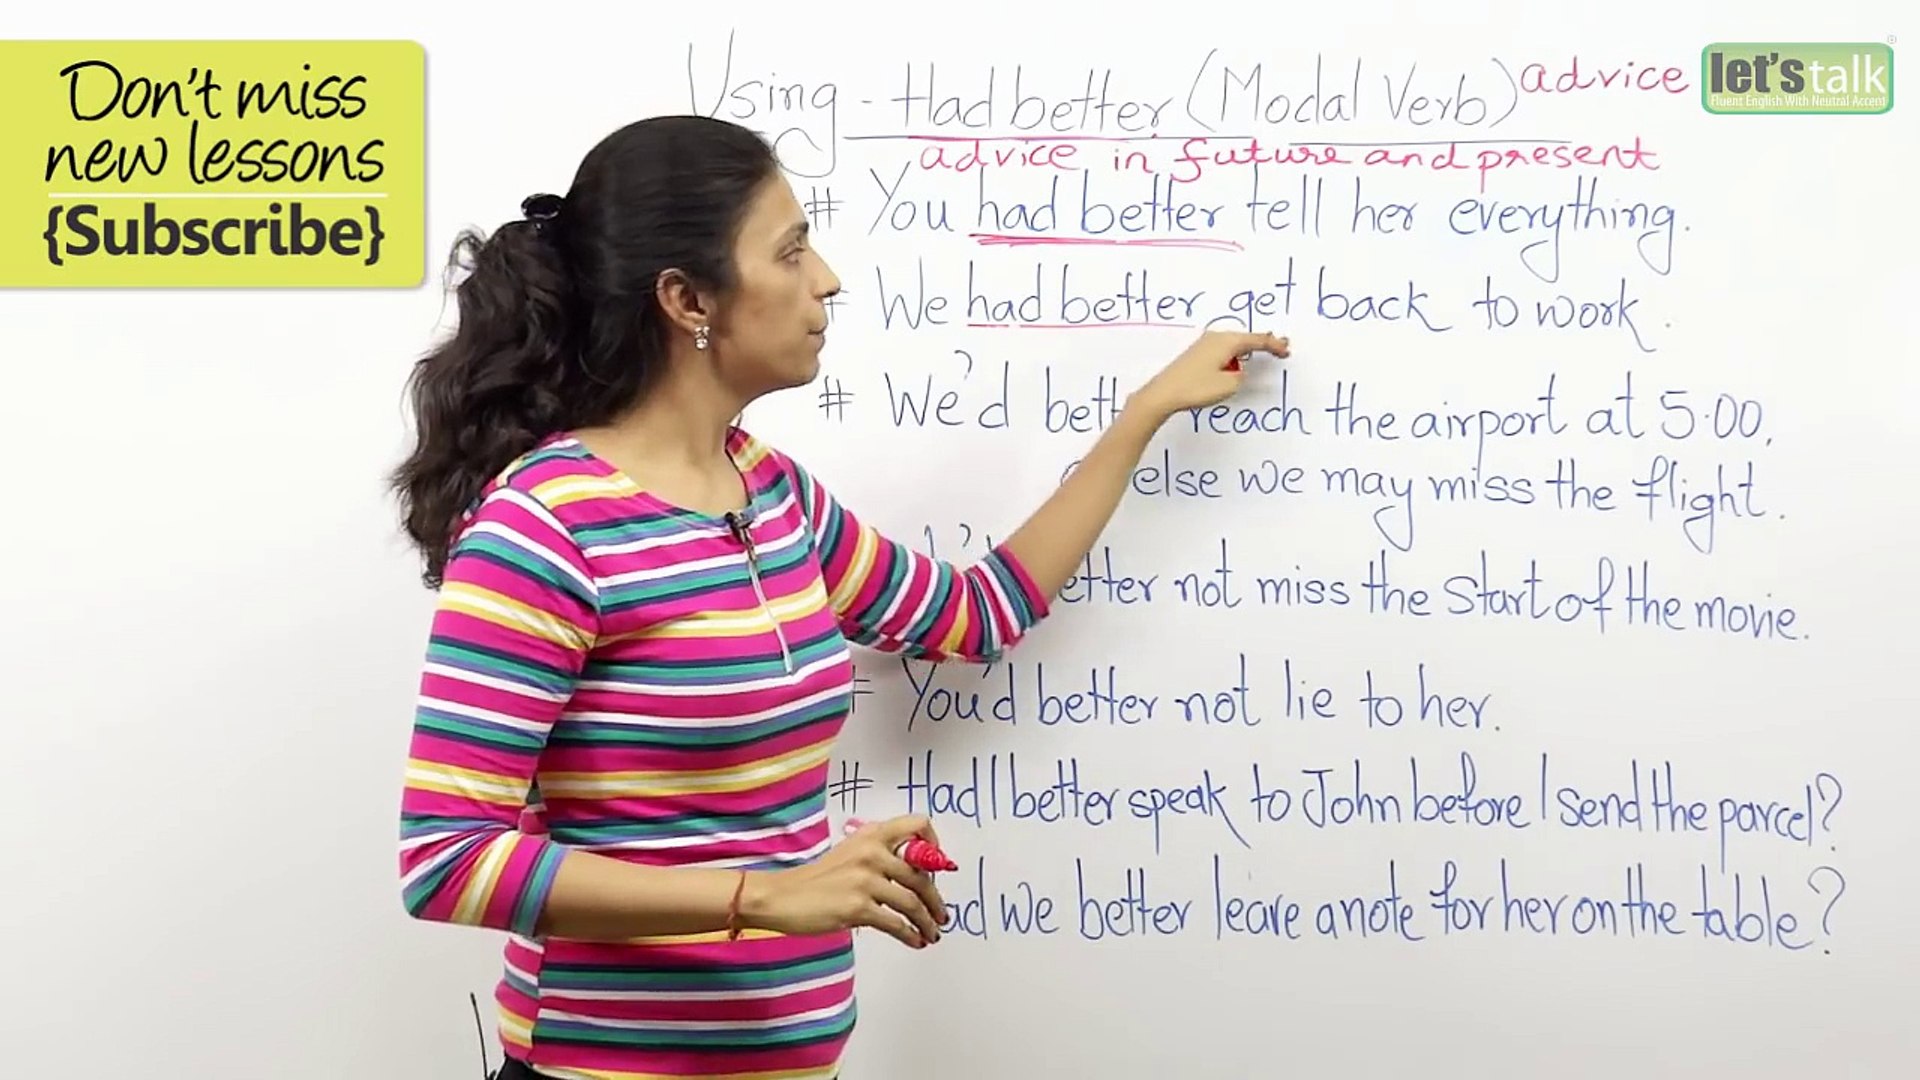 Don't miss
new lessons
{Subscribe}
let's talk
Fluent English With Neutral Accent
Using - Had better (Modal Verb) advice
advice in future and present
# You had better tell her everything.
We had better get back to work.
# We'd bett reach the airport at 5.00,
else we may miss the flight.
etter not miss the start of the movie.
You'd better not lie to her.
# Had I better speak to John before I send the parcel?
ad we better leave a note for her on the table?